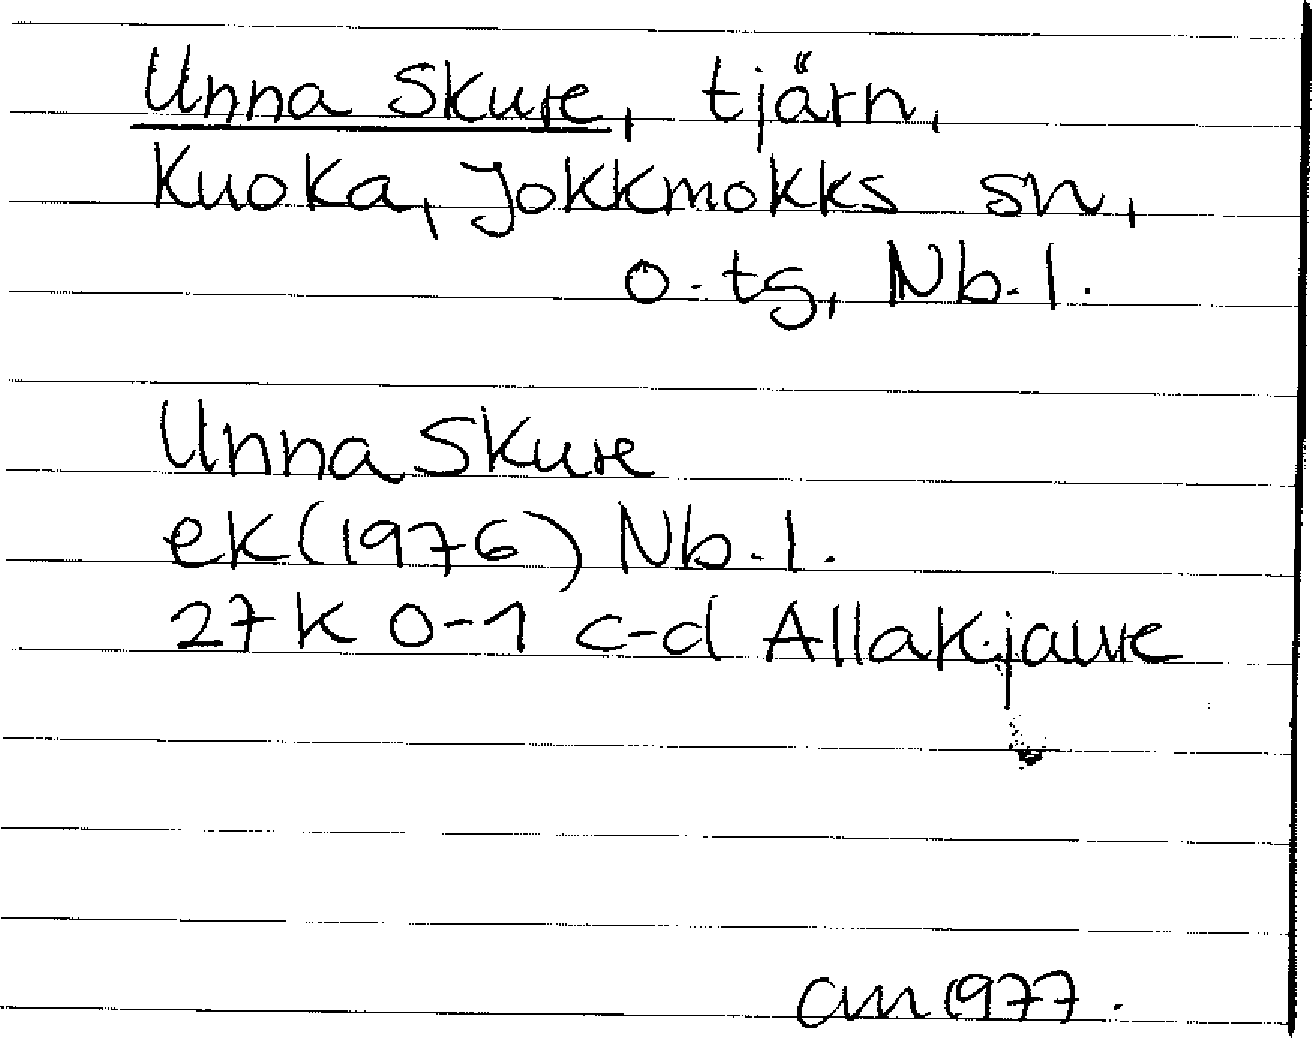 Unna Skure, tjärn,
Kuoka, Jokkmokks sn,
o. tg, Nb. l.
Unna Skure
ek (1976) Nb. l.
27 K 0-1 c-d Allakjaure
am 1977.